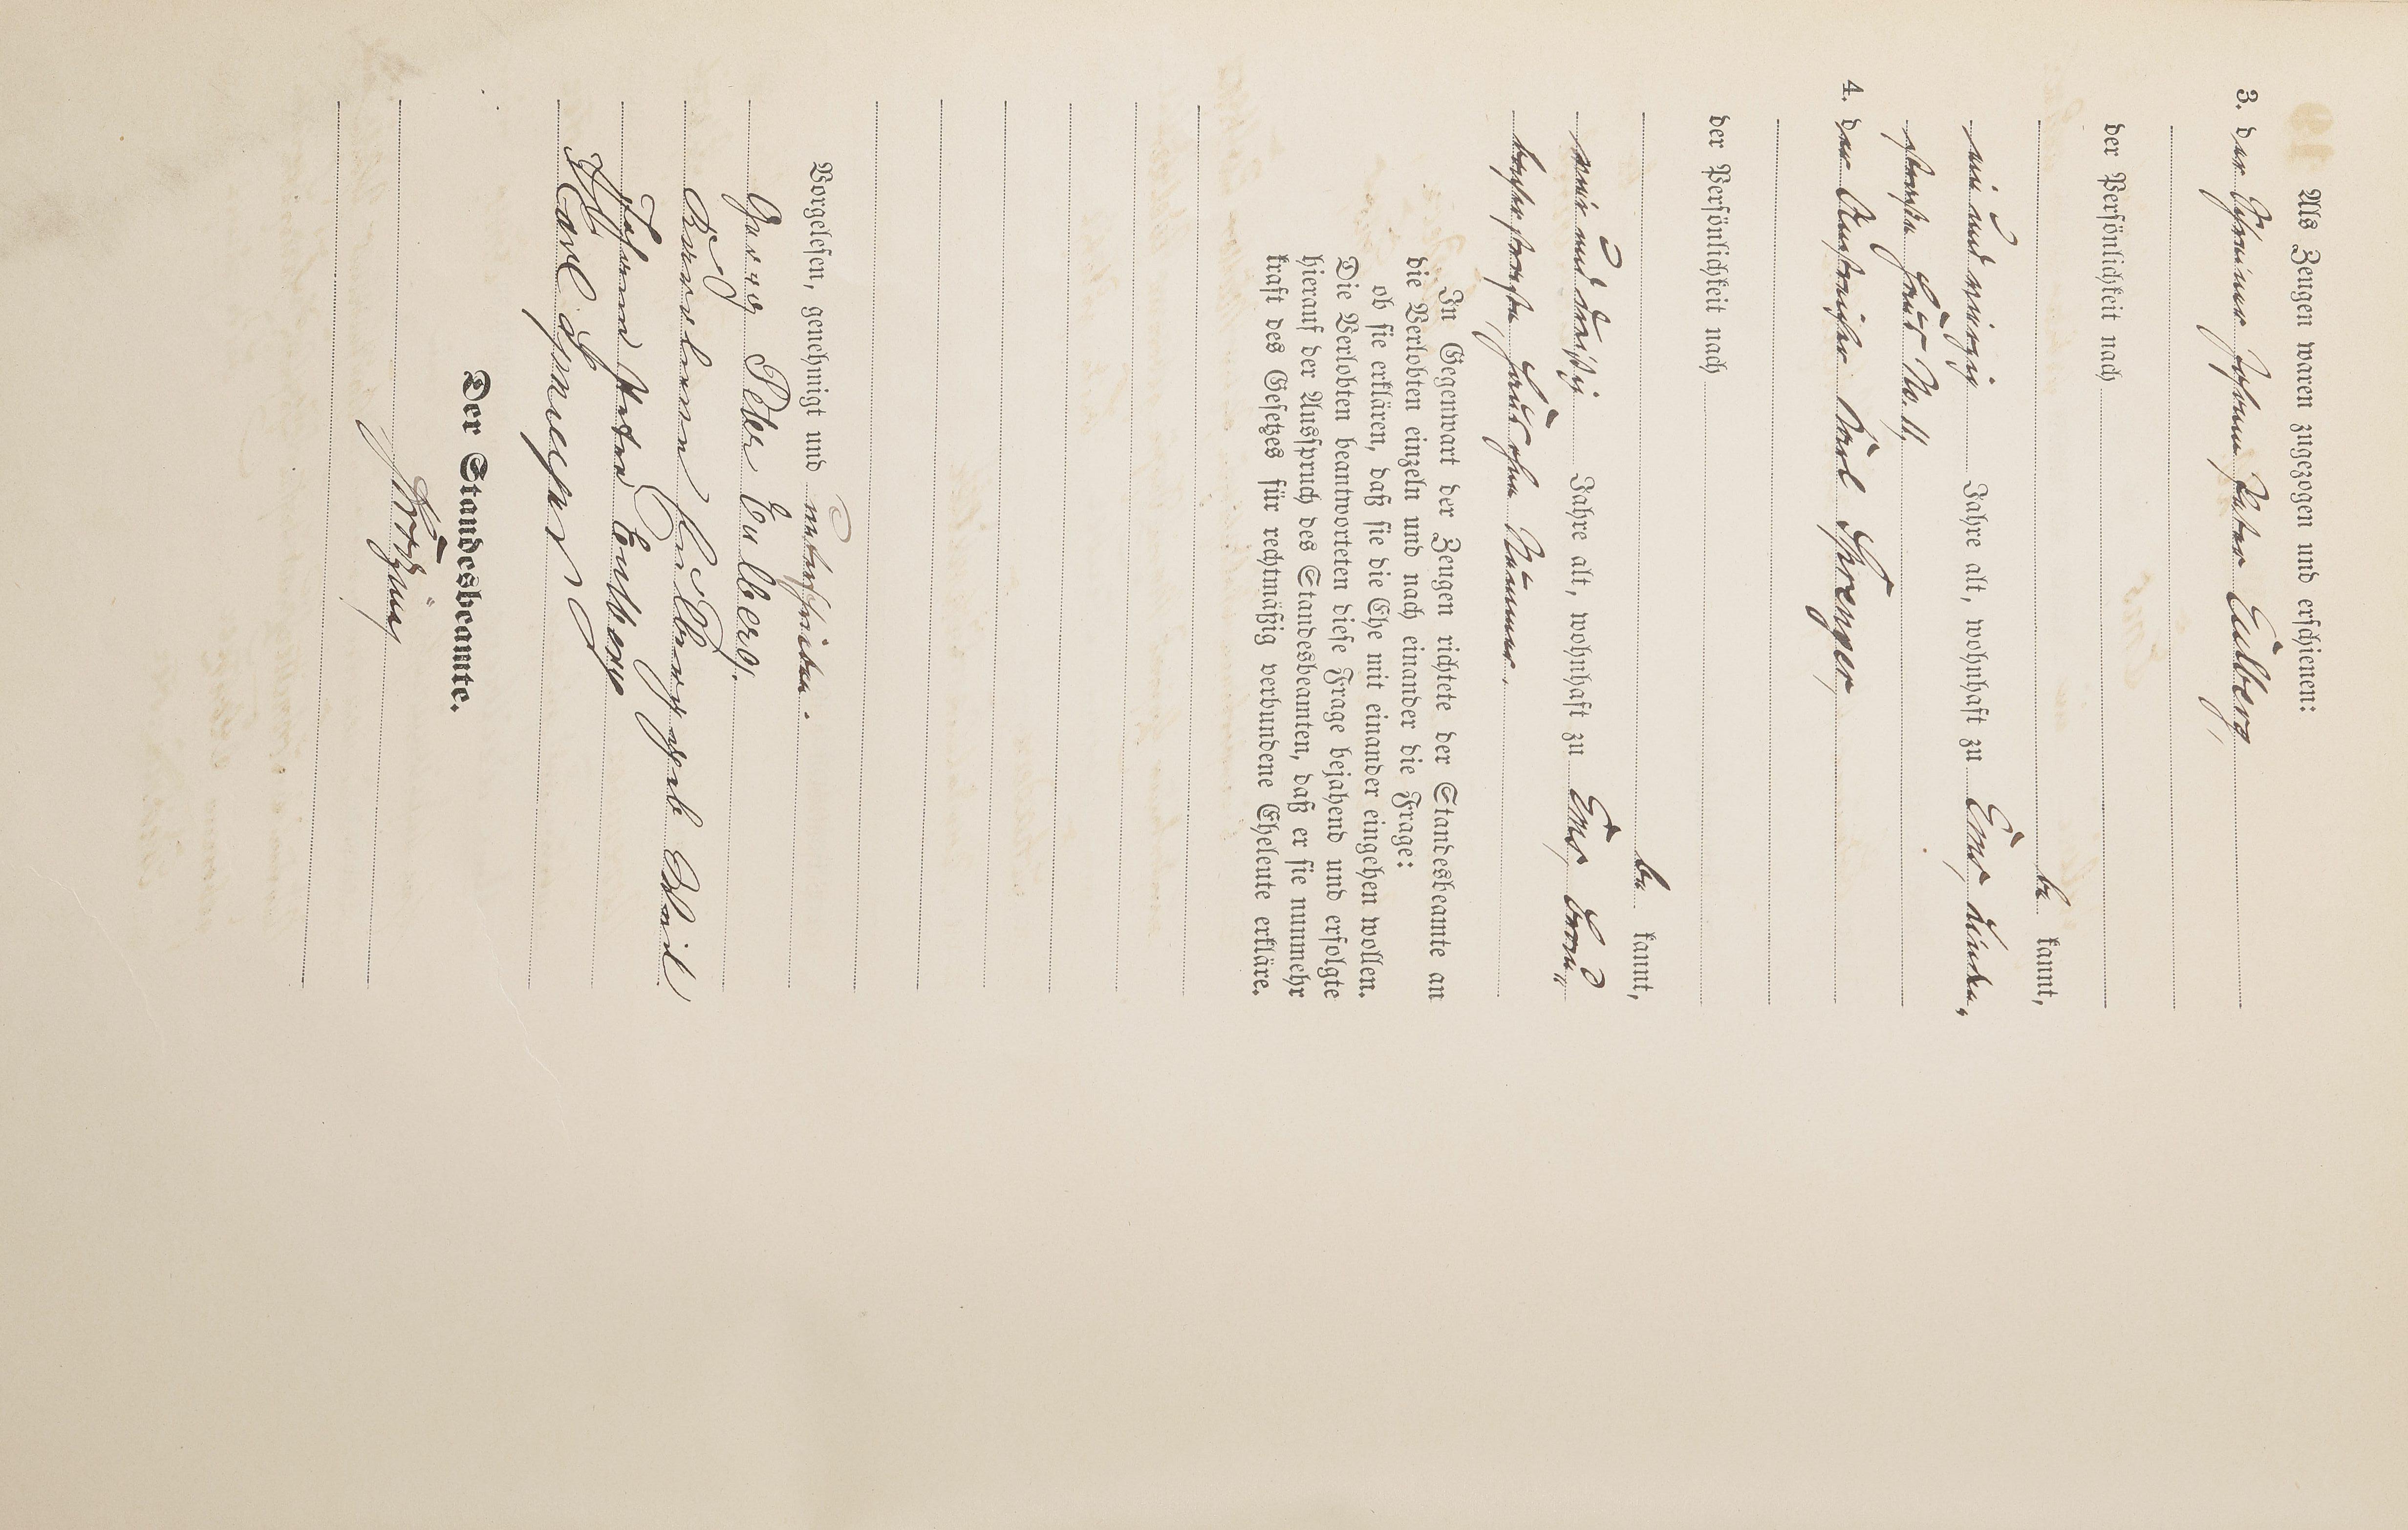 Als Zeugen waren zugezogen und erschienen:
3. der Schreiner Johann Peter Eulberg,
der Persönlichkeit nach
be kannt,
ein und vierzig Jahre alt, wohnhaft zu Ems, Linden„
straße Haus No. 11,
4. der Anstreicher Karl Sprenger,
der Persönlichkeit nach
be kannt,
neun und dreißig Jahre alt, wohnhaft zu Ems, Brau„
bacherstraße Haus ohne Nummer.
In Gegenwart der Zeugen richtete der Standesbeamte an
die Verlobten einzeln und nach einander die Frage:
ob sie erklären, daß sie die Ehe mit einander eingehen wollen.
Die Verlobten beantworteten diese Frage bejahend und erfolgte
hierauf der Ausspruch des Standesbeamten, daß er sie nunmehr
kraft des Gesetzes für rechtmäßig verbundene Eheleute erkläre.
Vorgelesen, genehmigt und unterschrieben.
Georg Peter Eulberg.
Karoline Eulberg geb
Johann Peter Eulberg
Carl Sprenger
Der Standesbeamte.